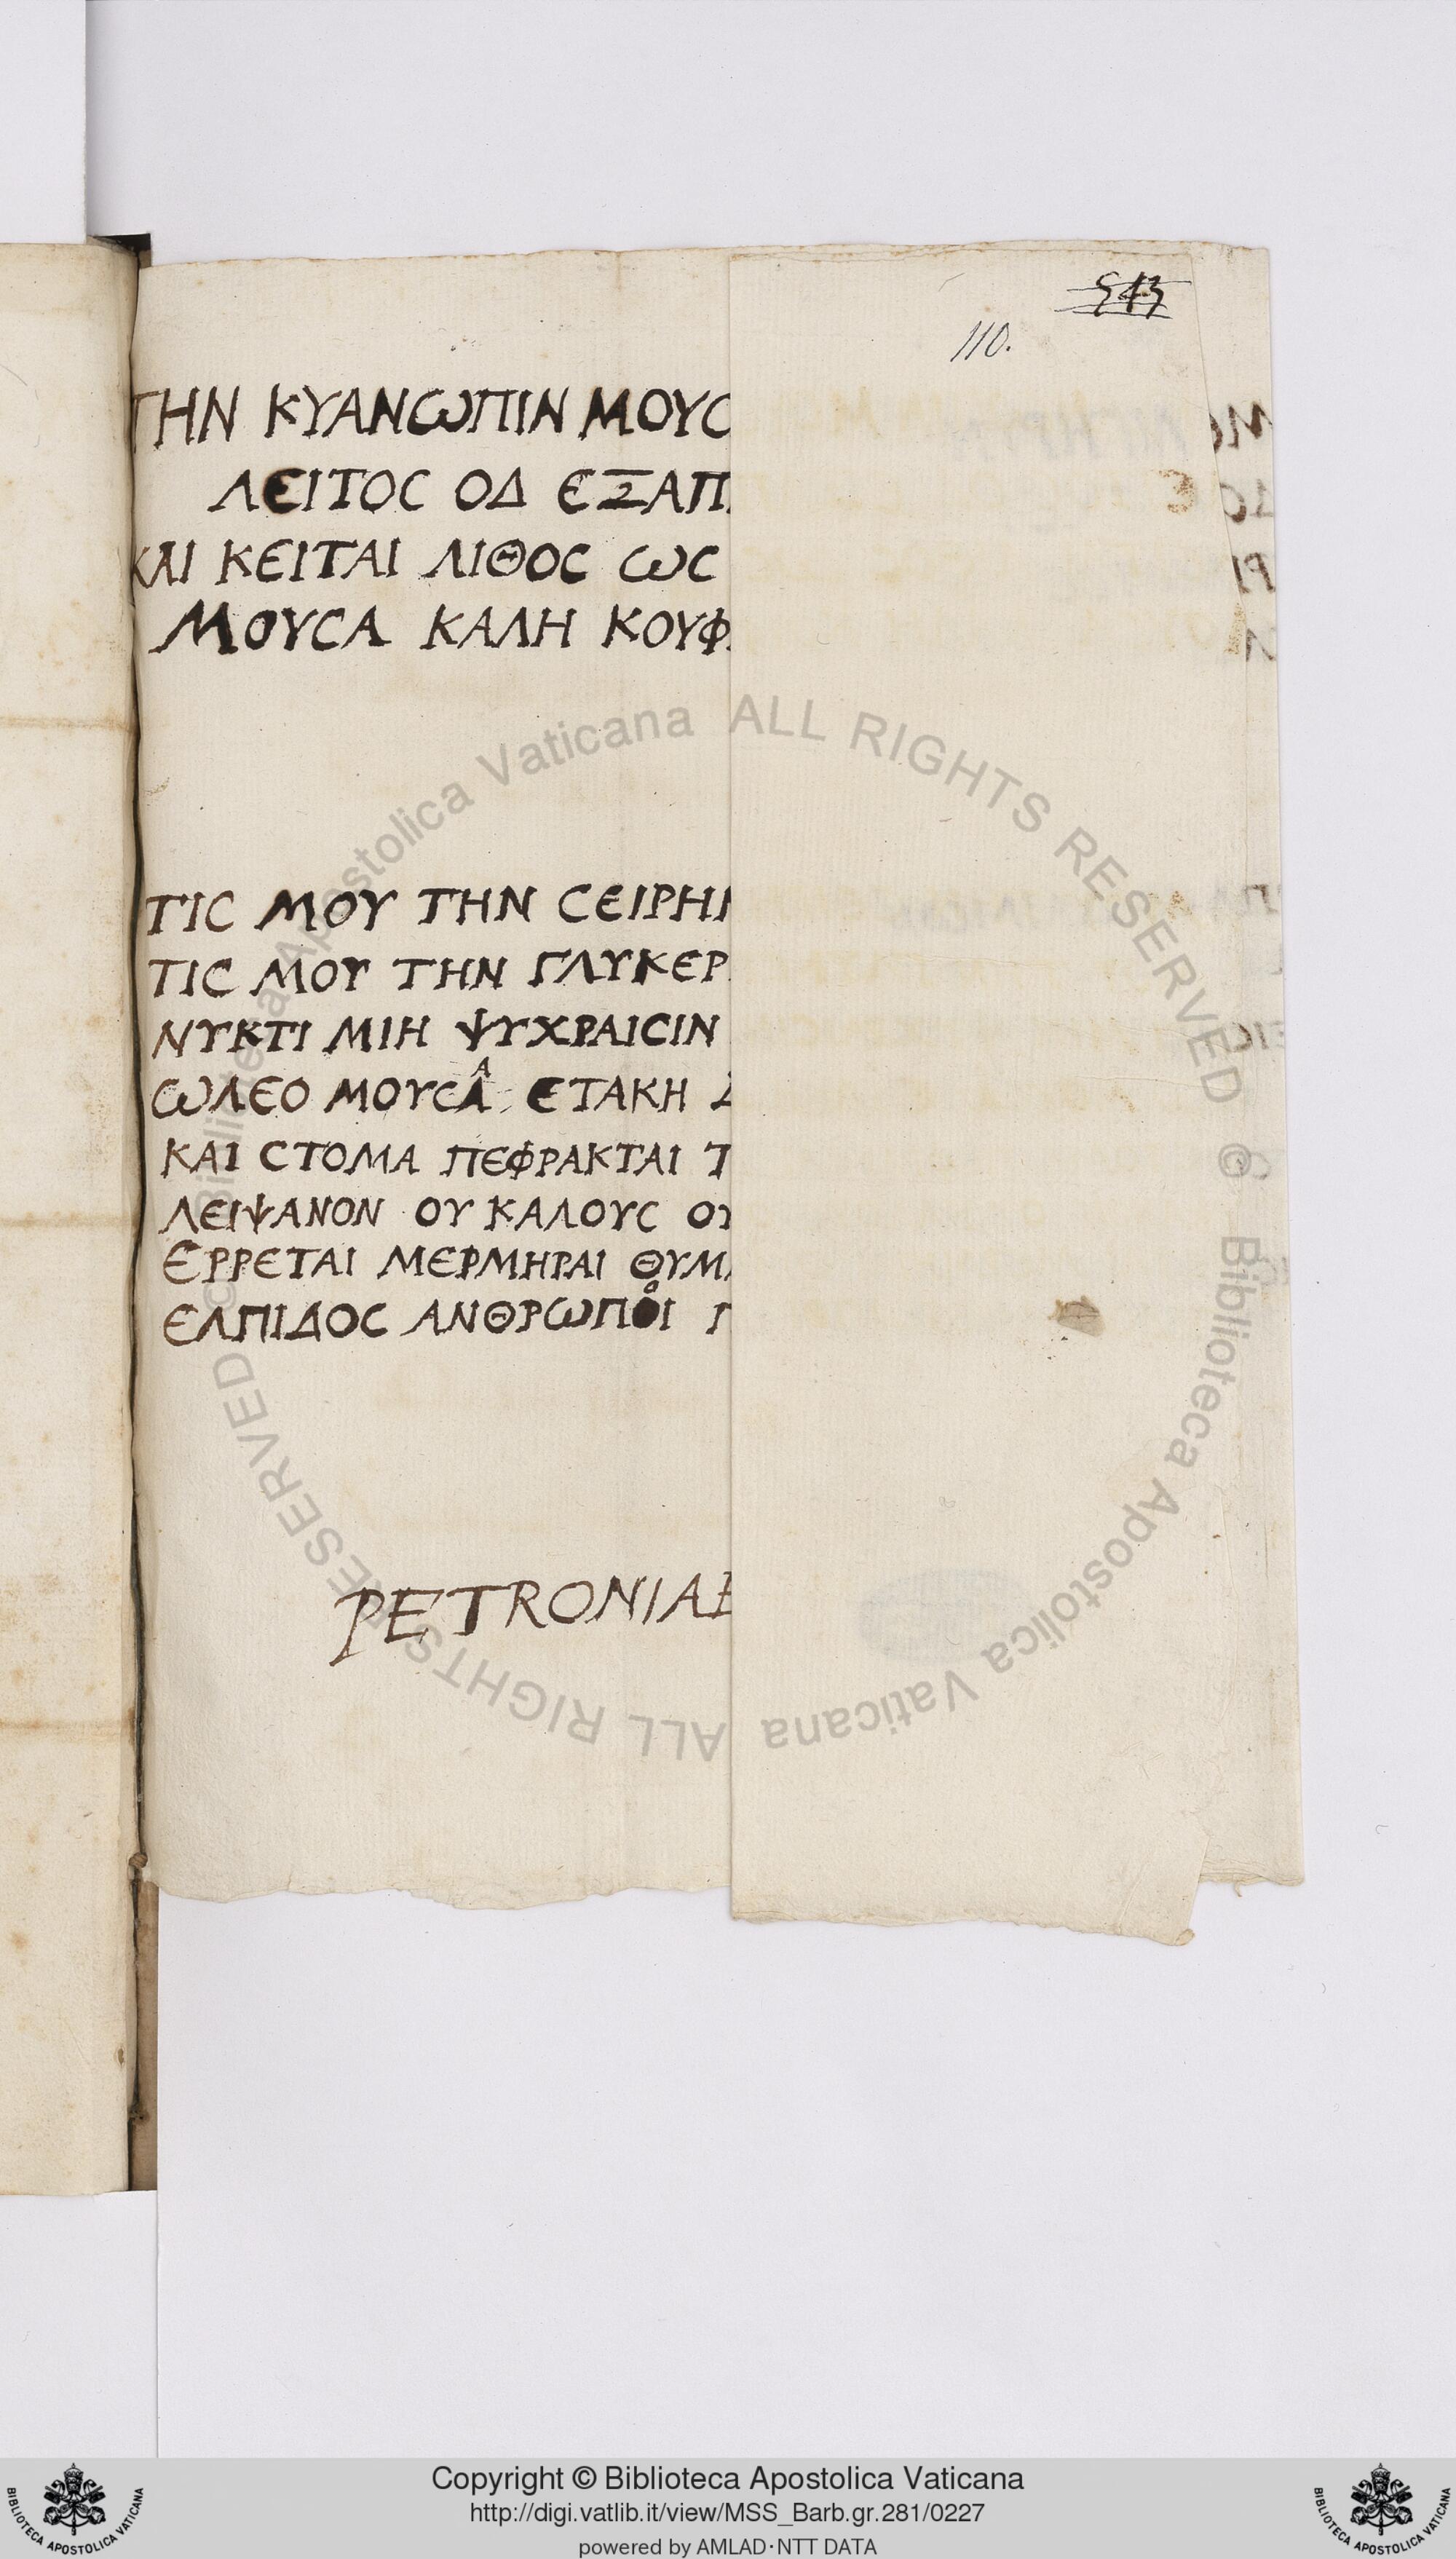 543
110.
ΤΗΝ ΚΥΑΝѠΠΙΝ ΜΟΥϹ
ΛΕΙΤΟϹ ΟΔ ΕΞΑΠ
ΚΑΙ ΚΕΙΤΑΙ ΛΙΘΟϹ ѠϹ
ΜΟΥϹΑ ΚΑΛΗ ΚΟΥΦ
ΤΙϹ ΜΟΥ ΤΗΝ ϹΕΙΡΗ
ΤΙϹ ΜΟΥ ΤΗΝ ΓΛΥΚΕΡ
ΝΥΚΤΙ ΜΙΗ ΨΥΧΡΑΙϹΙΝ
ѠΛΕΟ ΜΟΥϹΑ ΕΤΑΚΗ
ΚΑΙ ϹΤΟΜΑ ΠΕΦΡΑΚΤΑΙ Τ
ΛΕΙΨΑΝΟΝ ΟΥ ΚΑΛΟΥϹ ΟΥ
ΕΡΡΕΤΑΙ ΜΕΡΜΗΡΑΙ ΘΥΜ
ΕΛΠΙΔΟϹ ΑΝΘΡѠΠΟΙ Γ
PETRONIAE
© Biblioteca Apostolica Vaticana ALL RIGHTS RESERVED © Biblioteca Apostolica Vaticana ALL RIGHTS RESERVED
Copyright © Biblioteca Apostolica Vaticana
http://digi.vatlib.it/view/MSS_Barb.gr.281/0227
powered by AMLAD·NTT DATA
BIBLIOTECA APOSTOLICA VATICANA
BIBLIOTECA APOSTOLICA VATICANA